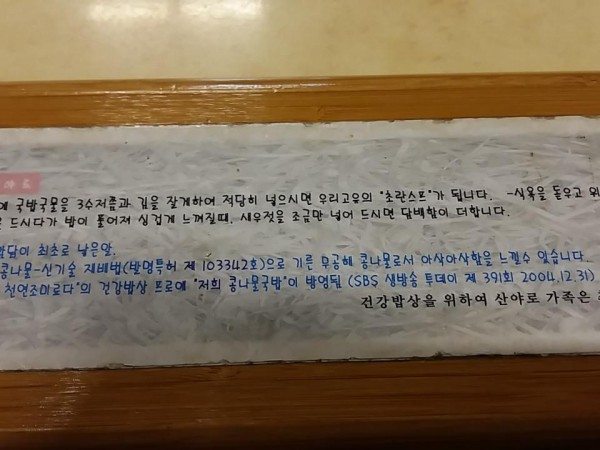 에 국밥국물을 3수저쯤과 김을 잘게하여 적당히 넣으시면 우리고유의 "초란스프"가 됩니다. -식욕을 돋우고 위
드시다가 밥이 풀어져 싱겁게 느껴질때, 새우젓을 조금만 넣어 드시면 담백함이 더합니다.
암닭이 최초로 낳은알.
콩나물-신기술 재배법(발명특허 제 103342호)으로 기른 무공해 콩나물로서 아삭아삭함을 느낄수 있습니다.
천연조미료다"의 건강밥상 프로에 "저희 콩나물국밥"이 방영됨 (SBS 생방송 투데이 제 391회 2004.12.31)
건강밥상을 위하여 산야로 가족은